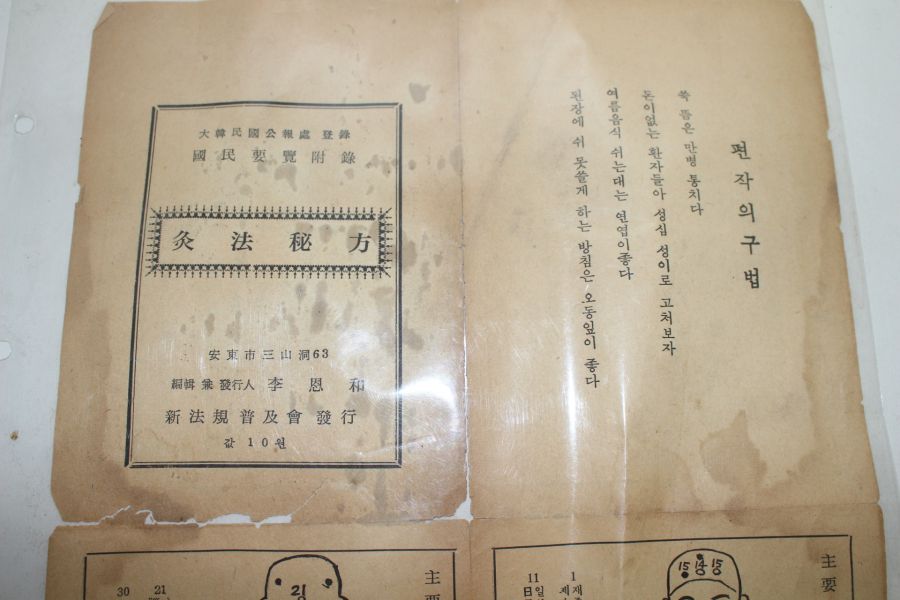 大韓民國公報處 登錄
國民要覽附錄
灸法秘方
安東市三山洞63
編輯 兼 發行人 李恩和
新法規普及會 發行
값 10원
편작의구법
쑥 뜸은 만병 통치다
돈이없는 환자들아 성심 성이로 고처보자
여름음식 쉬는대는 연엽이좋다
된장에 쉬 못쓸게 하는 방침은 오동잎이 좋다
主要
21
30
21
主要
15 14 15
1
11